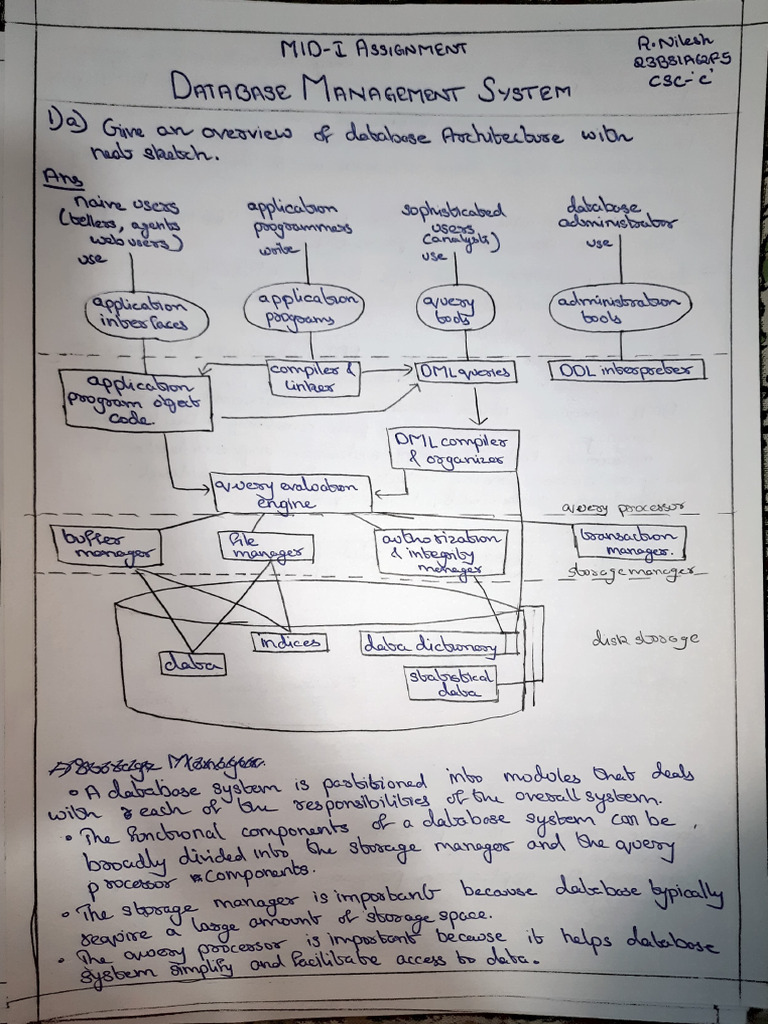 MID-I ASSIGNMENT
R. Nilesh
CSC-'C'
DATABASE MANAGEMENT SYSTEM
1)a) Give an overview of database Architecture with
neat sketch.
Ans
naive users
(tellers, agents
web users)
use
application
programmers
write
sophisticated
users
(analysts)
use
database
administrator
use
application
interfaces
application
programs
query
tools
administration
tools
application
program object
code.
compiler &
linker
DML queries
DDL interpreter
DML compiler
& organizer
query evaluation
engine
query processor
buffer
manager
file
manager
authorization
& integrity
manager
transaction
manager.
storage manager
data
indices
data dictionary
statistical
data
disk storage
• A database system is partitioned into modules that deals
with each of the responsibilities of the overall system.
• The functional components of a database system can be
broadly divided into the storage manager and the query
processor components.
• The storage manager is important because database typically
require a large amount of storage space.
• The query processor is important because it helps database
system simplify and facilitate access to data.